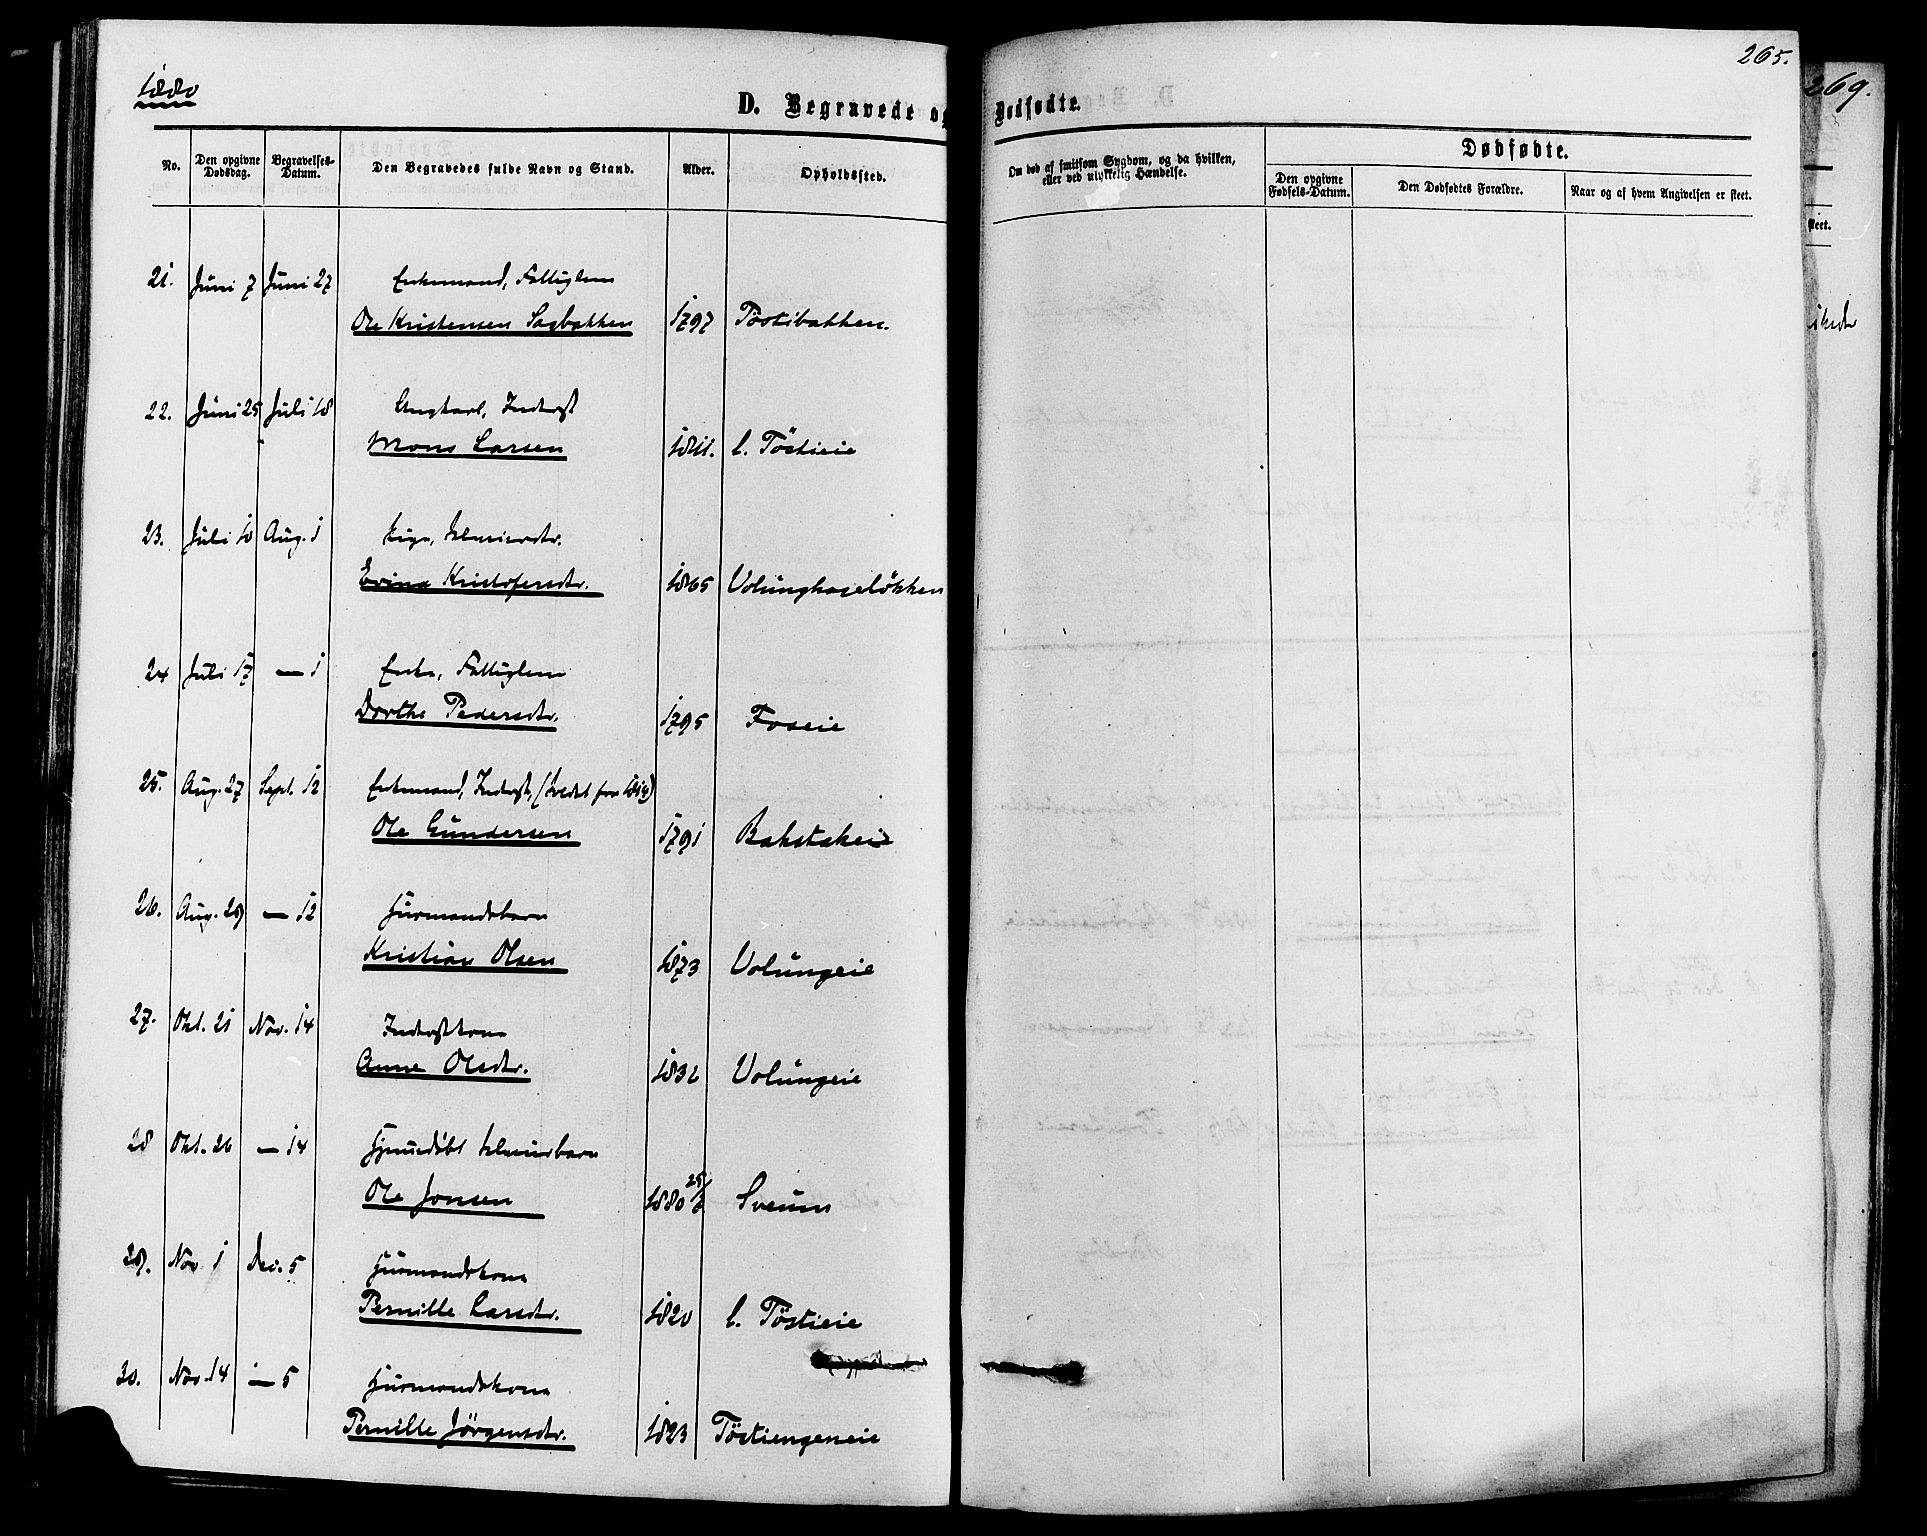 1880
265.
269.
D. Begravede og Dødfødte.
No.
Den opgivne Dødsdag.
Begravelses-Datum.
Den Begravedes fulde Navn og Stand.
Alder.
Opholdssted.
Om død af smitsom Sygdom, og da hvilken, eller ved ulykkelig Hændelse.
Dødfødte.
Den opgivne Fødsels-Datum.
Den Dødfødtes Forældre.
Naar og af hvem Angivelsen er skeet.
skeet.
21. Juni 7 Juni 27 Enkemand, Fattiglem
Ole Kristensen Sagbakken 1797 Töstibakken.
22. Juni 25 Juli 18 Ungkarl, Inderst
Mons Larsen 1841. l. Töstieie
23. Juli 10 Aug. 1 Pige,
Evina Kristofersdtr. 1865 Volunghageløkken
24 Juli 17 — 1 Enke, Fattiglem
Dorthe Pedersdtr. 1795 Foseie
25. Aug. 27 Sept. 12 Enkemand, Inderst, (Soldat fra 1814)
Ole Gundersen 1791 Bakstakeie
26. Aug. 29 — 12 Husmandsbarn
Kristian Olsen 1873 Volungeie
27. Okt. 21 Nov. 14 Inderstkone
Anne Olsdtr. 1832 Volungeie
28 Okt. 26 — 14 Hjemmedöbt
Ole Jonsen 1880 Sveum
29. Nov. 1 Dec. 5 Husmandskone
Pernille Larsdtr. 1820 l. Töstieie
30. Nov. 14 — 5 Husmandskone
Pernille Jörgensdtr. 1823 Töstiengeneie